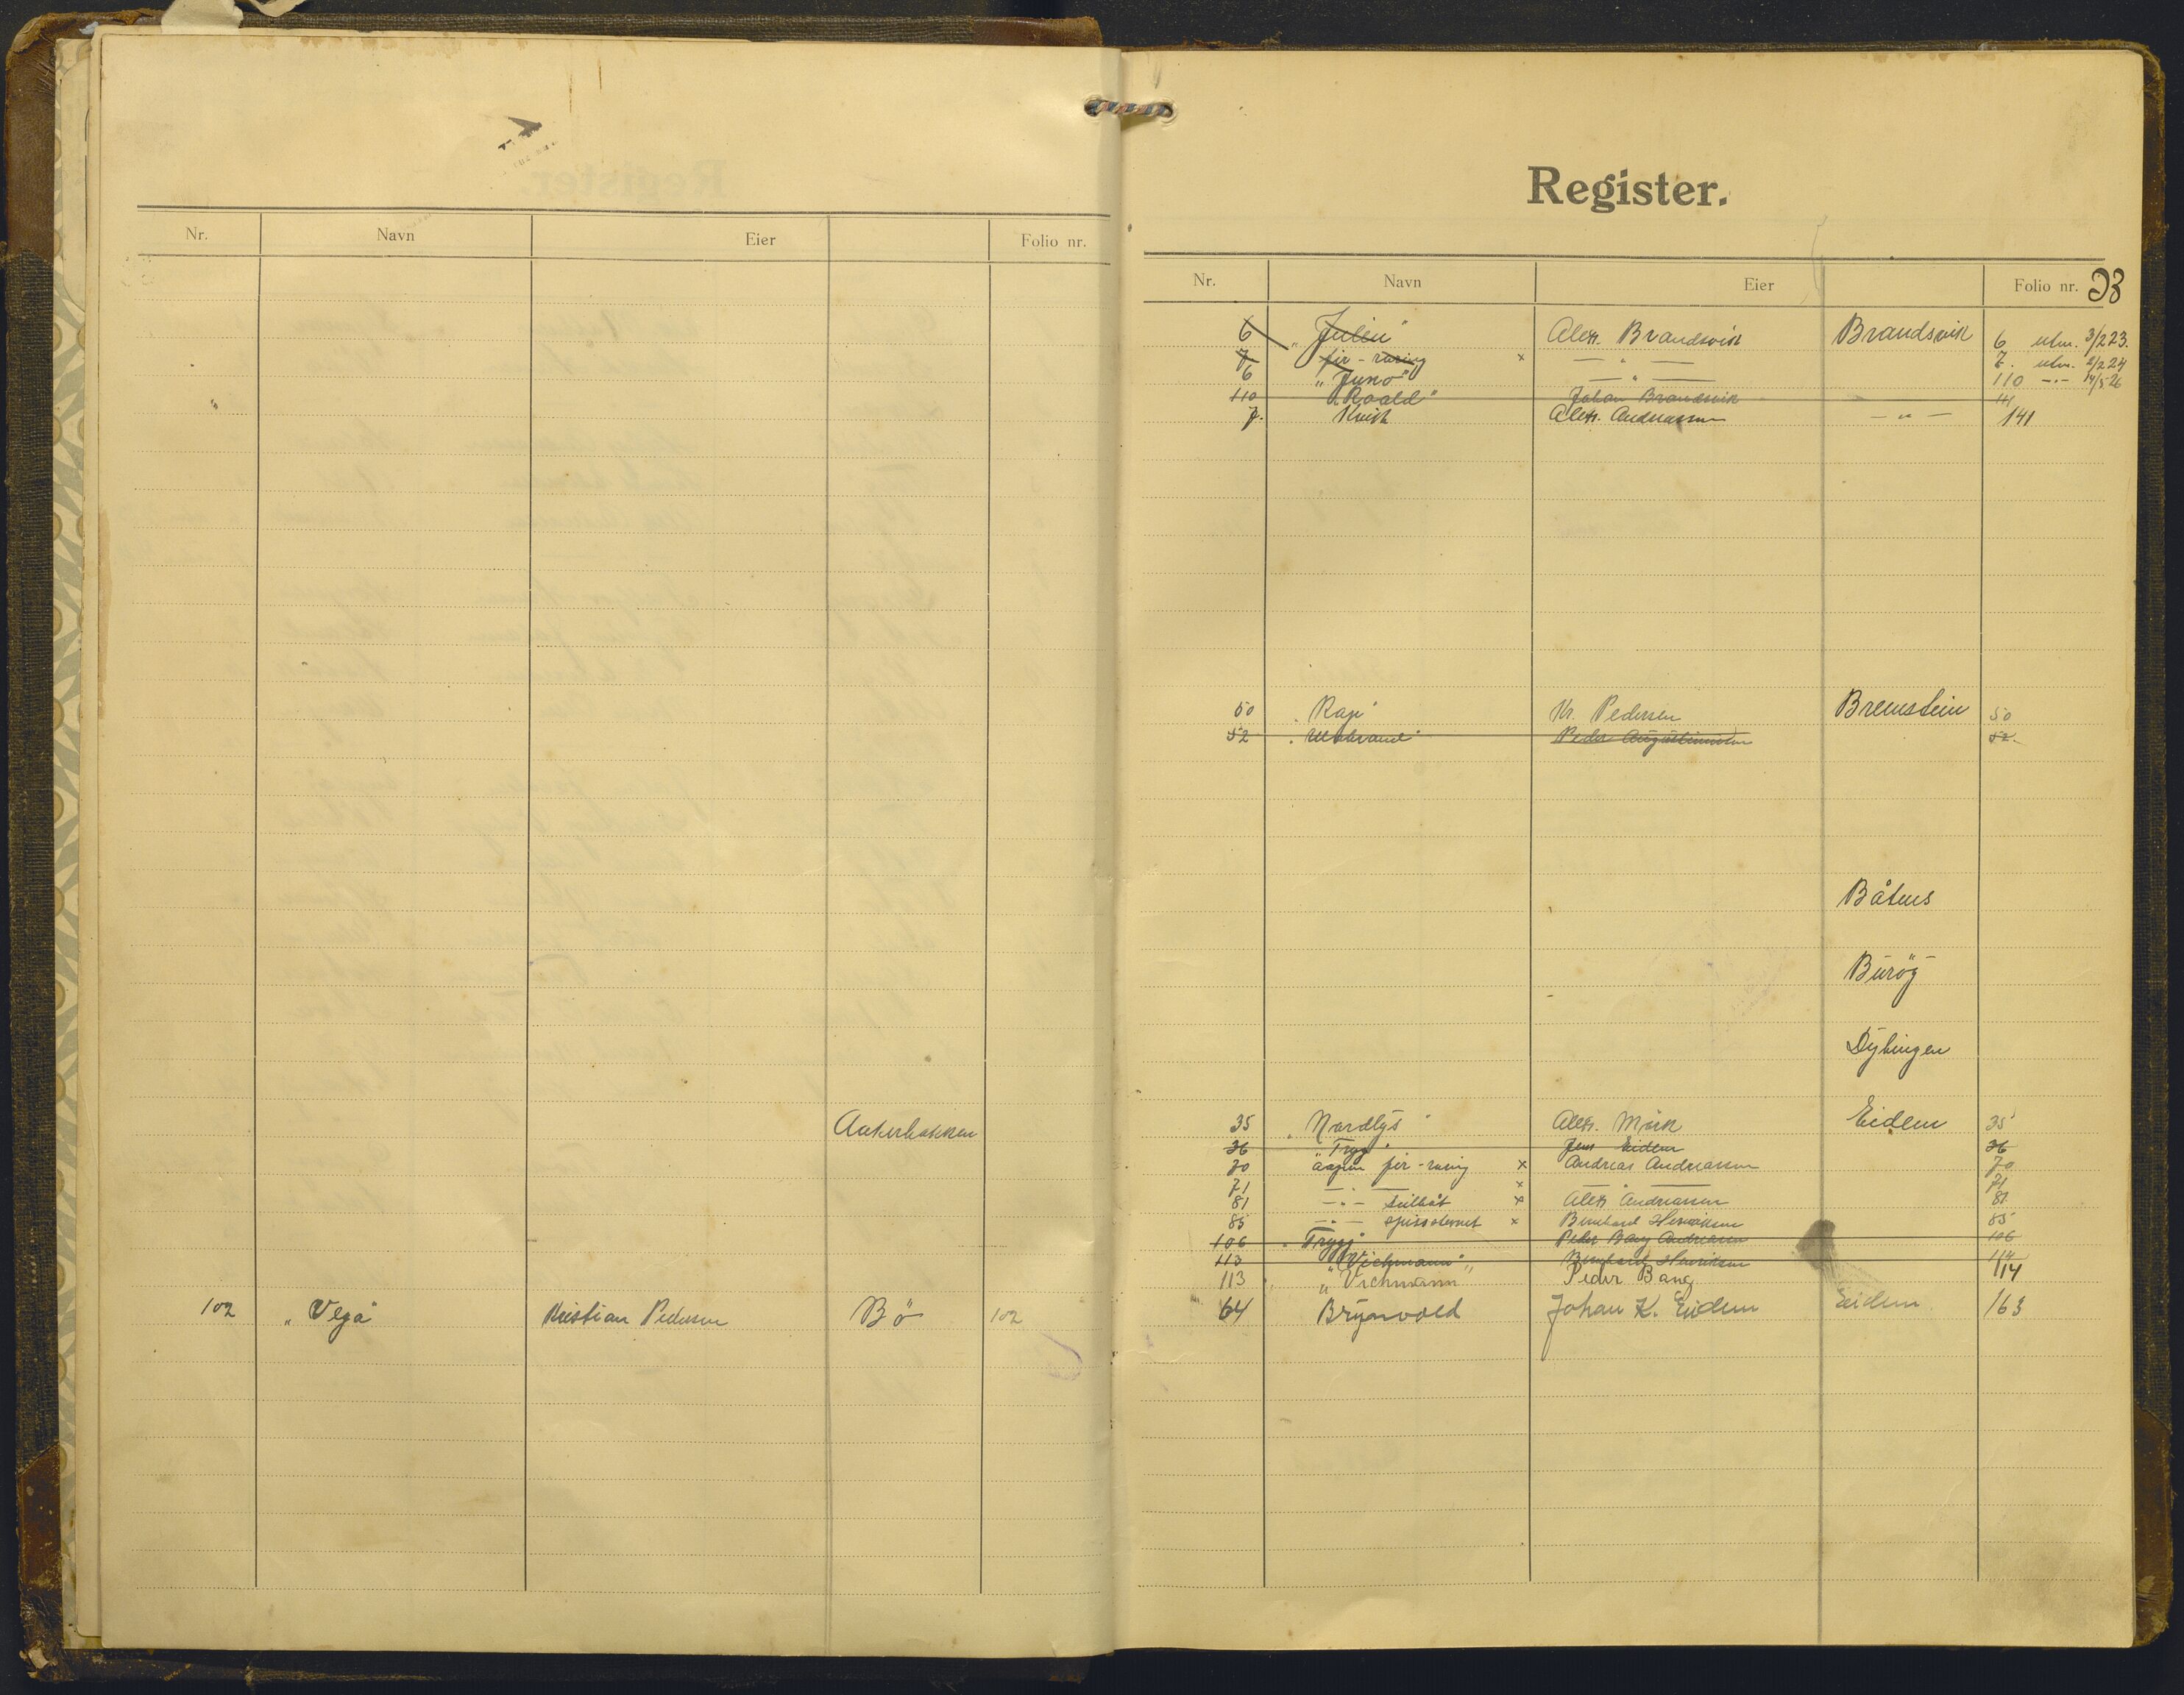 Nr. Navn Eier Folio nr.
102 „Vega" Kristian Pedersen Bö 102
Register.
Nr. Navn Eier Folio nr. 23
6 „Julia" Alex. Brandsvik Brandsvik 6 utm. 3/2 23.
7 fir-roring x — " — 7. utm. 2/2 24
6 „Juno" — " — 110 -"- 14/5-26
110 „Roald" Johan Brandsvik 111
7. Kvik Alex. Andreassen — " — 141
50 „Rap" Kr. Pedersen Bremstein 50
52 Peder Augustinussen 52.
Båtnes
Buröy
Eidem
35 „Nordlys" Alex. Mörk 35
36 „Tryg" Jens Eidem 36
70 aapen fir-roring x Andreas Andreassen 70
71 — " — x — " — 71
81 -"- seilbåt x Alex Andreassen 81
85 -"- x Bernhard Henriksen 85
106 „Trygg" Peder Bang Andreassen 106
113 „Vichmann" Bernhard Henriksen 114
113 „Vichmann" Peder Bang 114
64 Brynvold Johan K. Eidem Eidem 163